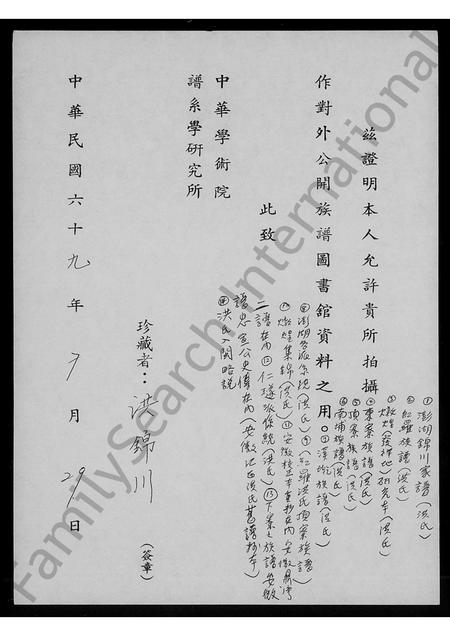 茲證明本人允許貴所拍攝
①澎湖錦川家譜(洪氏)
②紅羅族譜(洪氏)
③燉煌(發祥地)研究本(洪氏)
④東寮族譜(洪氏)
⑤頂寮族譜(洪氏)
⑥南埔族譜(洪氏)
⑦洋池族譜(洪氏)
作對外公開族譜圖書館資料之用。
⑧澎湖各派系統(洪氏)⑨紅羅洪氏頂寮族譜
⑩燉煌集錦(洪氏)⑪安徽
二譜在內⑫仁璲派系統(洪氏)⑬下寮之族譜安徽
譜忠宣公史傳在內(安徽
⑭洪氏入閩略說
此致
中華學術院
譜系學研究所
珍藏者:洪錦川
(簽章)
中華民國六十九年7月29日
FamilySearch International